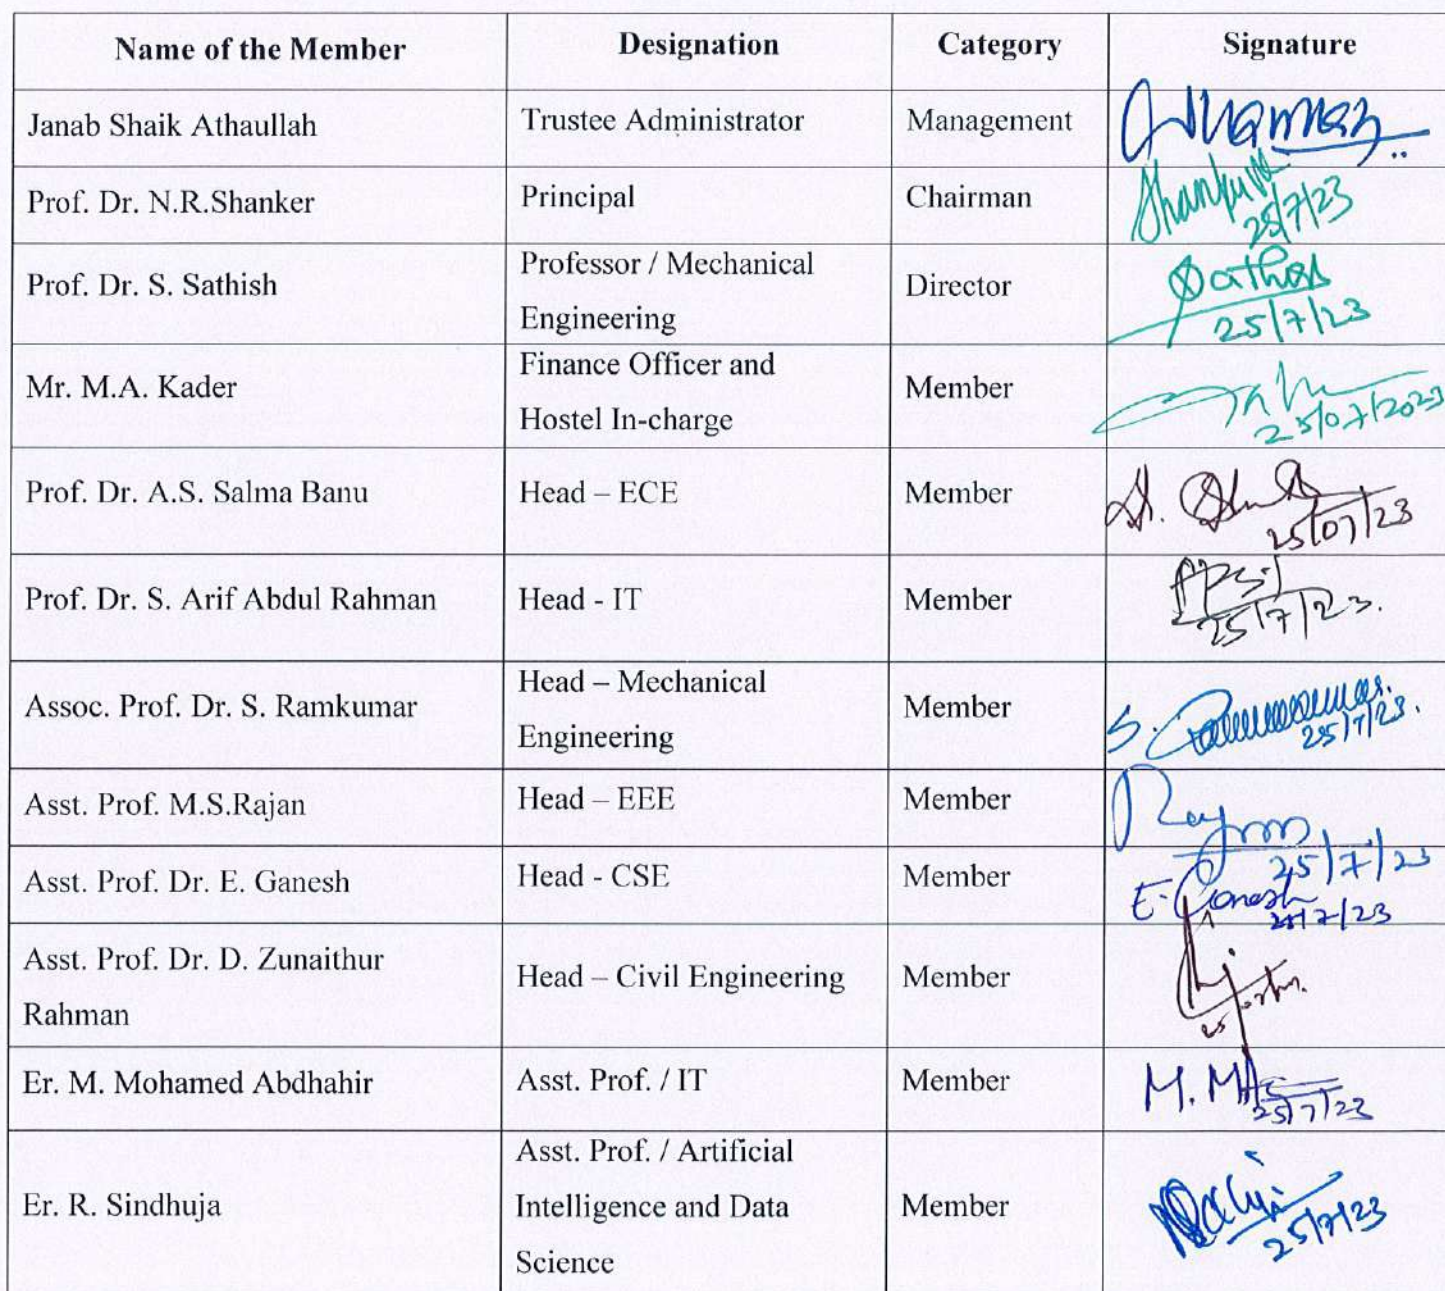 Name of the Member Designation Category Signature
Janab Shaik Athaullah Trustee Administrator Management
Prof. Dr. N.R.Shanker Principal Chairman
25/7/23
Prof. Dr. S. Sathish Professor / Mechanical Director
Engineering
25/7/23
Mr. M.A. Kader Finance Officer and Member
Hostel In-charge
25/07/2023
Prof. Dr. A.S. Salma Banu Head – ECE Member
25/07/23
Prof. Dr. S. Arif Abdul Rahman Head - IT Member
25/7/23.
Assoc. Prof. Dr. S. Ramkumar Head – Mechanical Member
Engineering
25/7/23.
Asst. Prof. M.S.Rajan Head – EEE Member
25/7/23
Asst. Prof. Dr. E. Ganesh Head - CSE Member E. Ganesh
Asst. Prof. Dr. D. Zunaithur Head – Civil Engineering Member
Rahman
Er. M. Mohamed Abdhahir Asst. Prof. / IT Member
25/7/23
Asst. Prof. / Artificial
Er. R. Sindhuja Intelligence and Data Member
Science
25/7/23